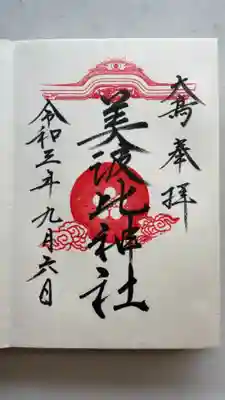 大鳥 奉拝
美波比神社
令和三年九月六日